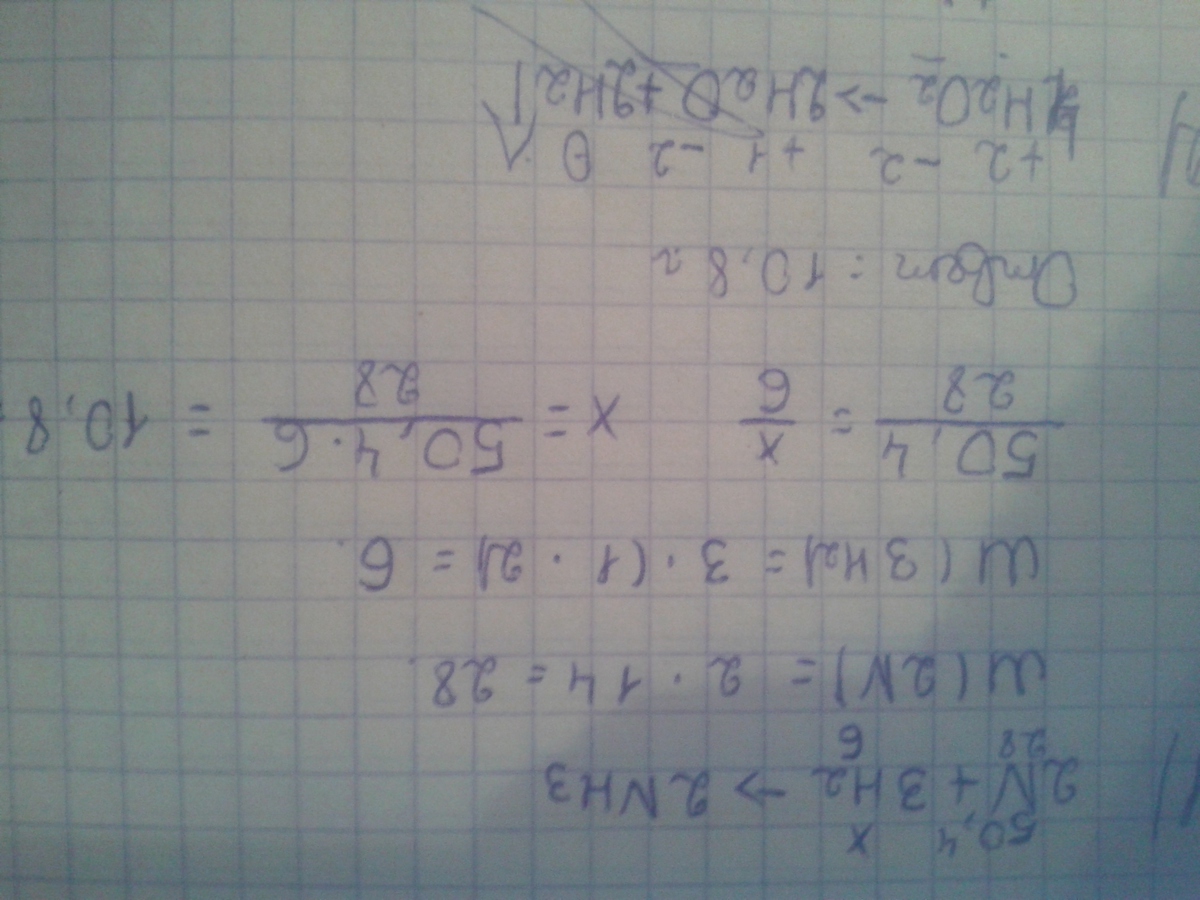 1)
50,4 x
2N + 3H2 → 2NH3
28 6
m(2N) = 2 · 14 = 28.
m(3H2) = 3 · (1 · 2) = 6.
50,4/28 = x/6 x = 50,4·6/28 = 10,8
Ответ: 10,8г
+2 -2 +1 -2 0
H2O2 → 2H2O + 2H2